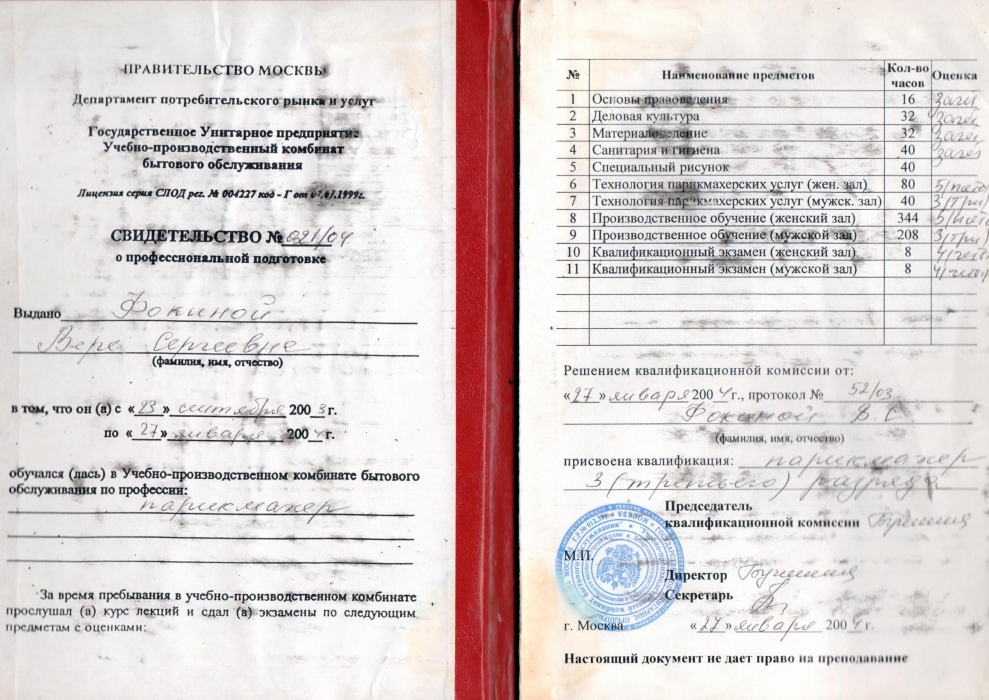 ПРАВИТЕЛЬСТВО МОСКВЫ
Департамент потребительского рынка и услуг
Государственное Унитарное предприятие
Учебно-производственный комбинат
бытового обслуживания
Лицензия серия СЛОД рег. № 004227 код - Г от
СВИДЕТЕЛЬСТВО № 021/04
о профессиональной подготовке
Выдано Фокиной
Вере Сергеевне
(фамилия, имя, отчество)
в том, что он (а) с « 23 » сентября 200 3 г.
по « 27 » января 200 4 г.
обучался (лась) в Учебно-производственном комбинате бытового
обслуживания по профессии:
парикмахер
За время пребывания в учебно-производственном комбинате
прослушал (а) курс лекций и сдал (а) экзамены по следующим
предметам с оценками:
№ Наименование предметов Кол-во часов Оценка
1 Основы правоведения 16 зачёт
2 Деловая культура 32 зачёт
3 Материаловедение 32 зачёт
4 Санитария и гигиена 40 зачёт
5 Специальный рисунок 40
6 Технология парикмахерских услуг (жен. зал) 80 5
7 Технология парикмахерских услуг (мужск. зал) 40 3 (три)
8 Производственное обучение (женский зал) 344 5
9 Производственное обучение (мужской зал) 208 3 (три)
10 Квалификационный экзамен (женский зал) 8 4
11 Квалификационный экзамен (мужской зал) 8 4
Решением квалификационной комиссии от:
« 27 » января 200 4 г., протокол № 52/03
Фокиной В. С.
(фамилия, имя, отчество)
присвоена квалификация: парикмахер
3 (третьего) разряда
Председатель
квалификационной комиссии
М.П.
Директор
Секретарь
г. Москва « 27 » января 200 4 г.
Настоящий документ не дает право на преподавание